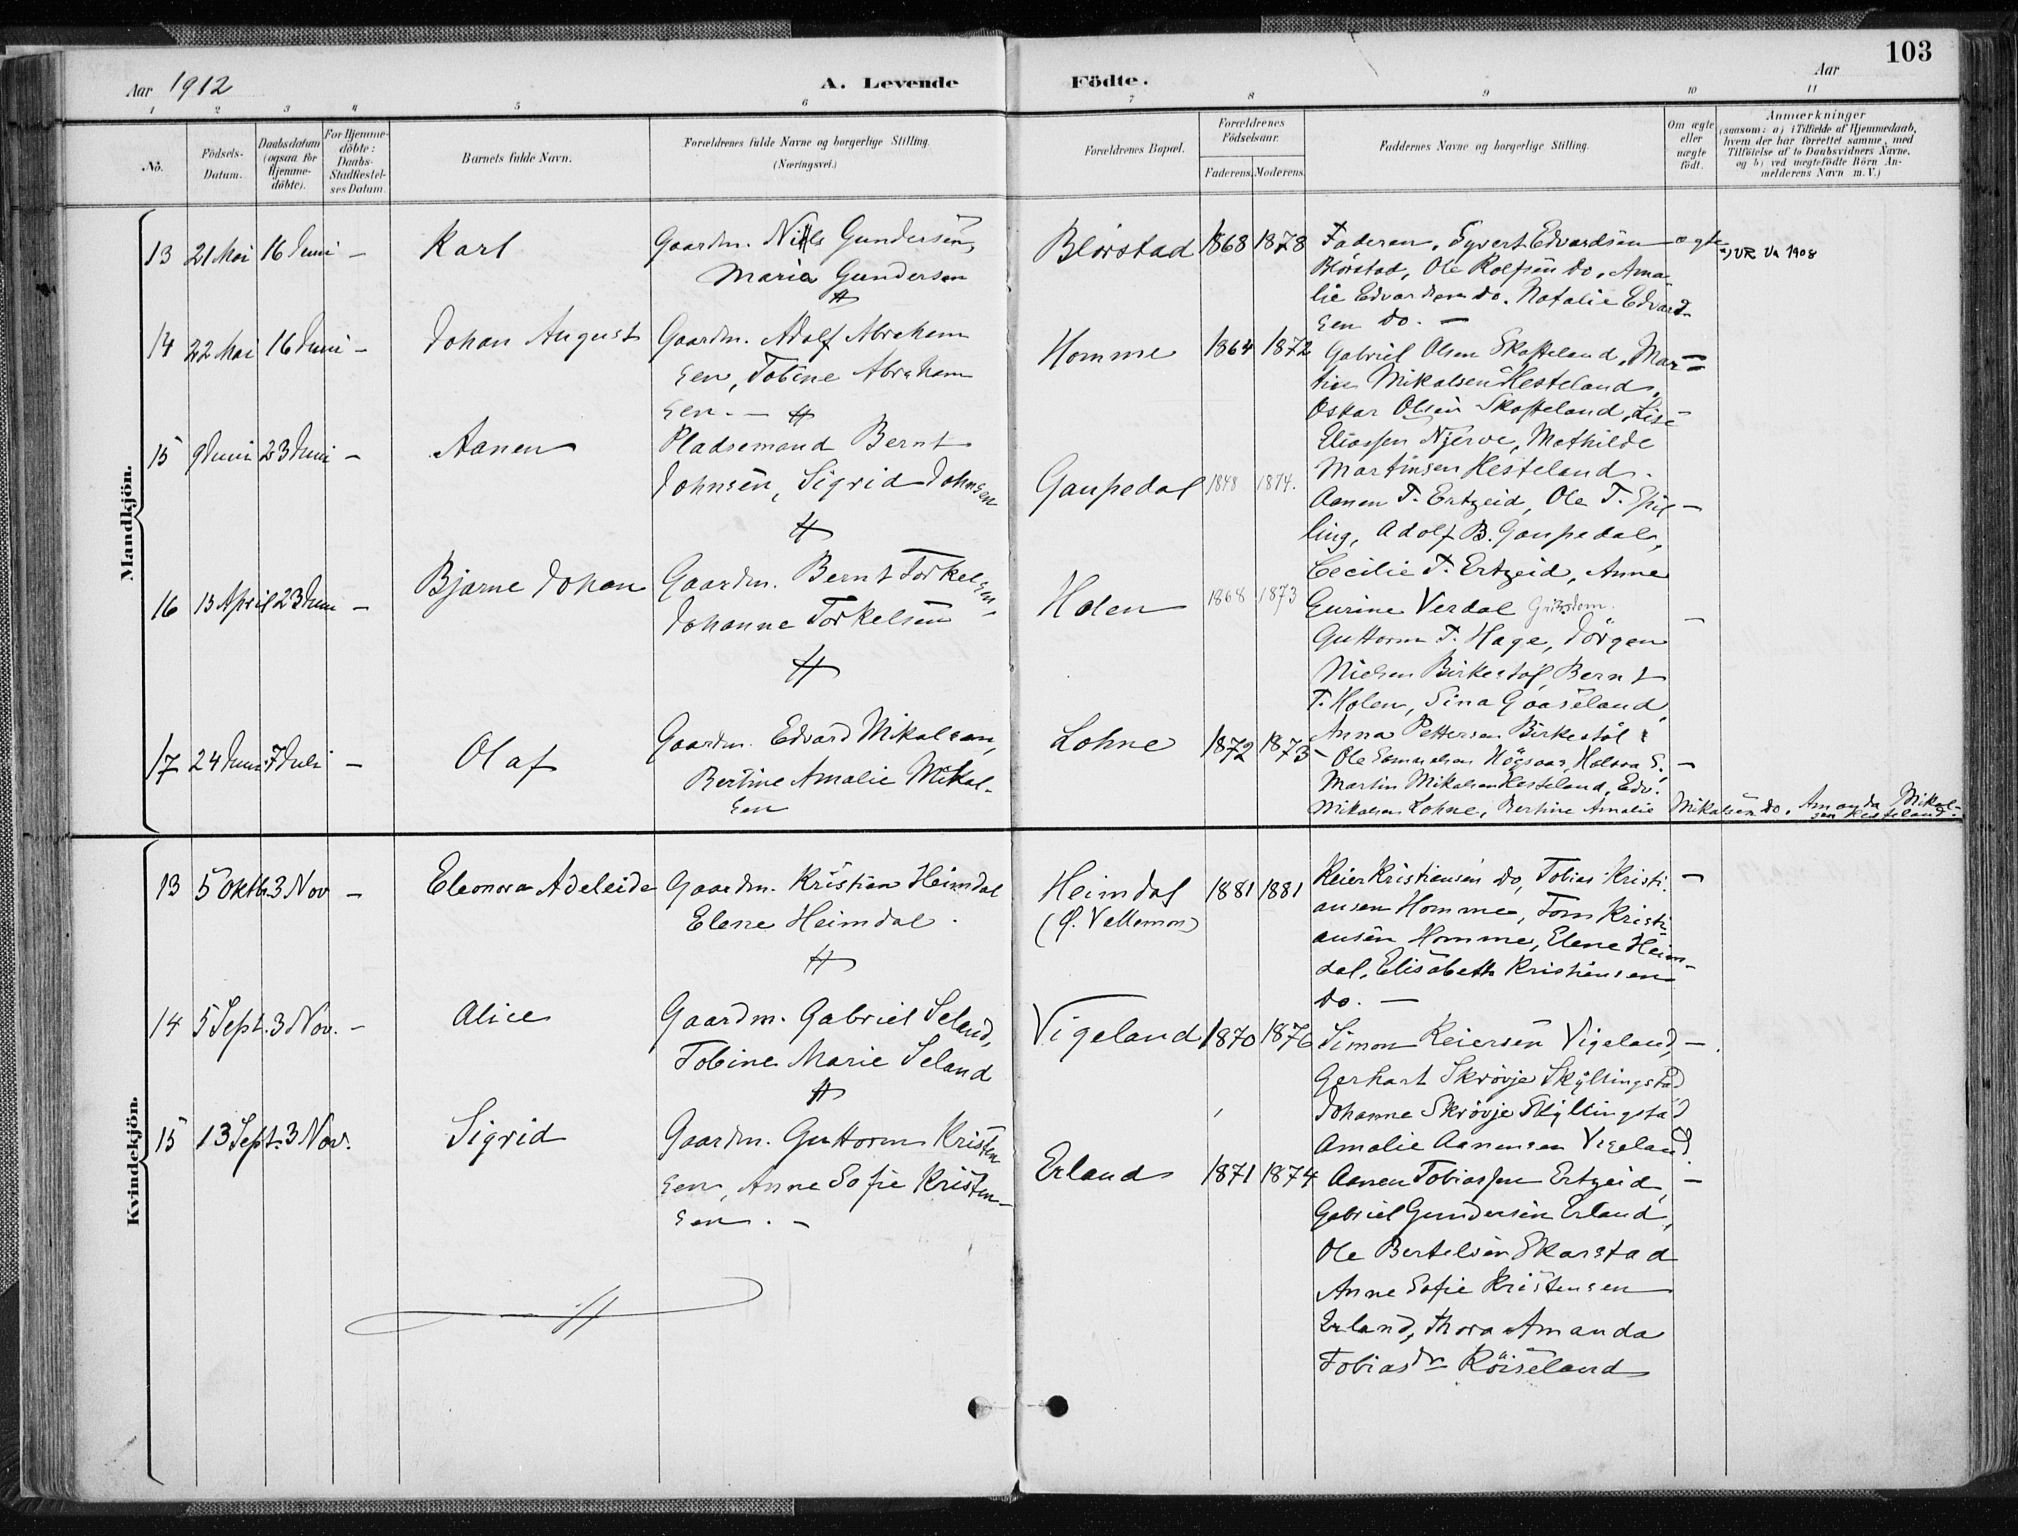 103
Aar 1912
A. Levende Födte.
Aar
1 2 3 4 5 6 7 8 9 10 11
No.
Födsels-
Datum.
Daabsdatum
(ogsaa for
Hjemme-
döbte).
For Hjemme-
döbte:
Daabs-
Stadfæstel-
ses Datum.
Barnets fulde Navn.
Forældrenes fulde Navne og borgerlige Stilling.
(Næringsvei.)
Forældrenes Bopæl.
Forældrenes
Födselsaar.
Faderens. Moderens.
Faddernes Navne og borgerlige Stilling.
Om ægte
eller
uægte
födt.
Anmærkninger
(saasom: a) i Tilfælde af Hjemmedaab,
hvem der har forrettet samme, med
Tilföielse af to Daabsvidners Navne,
og b) ved uægtefödte Börn An-
melderens Navn m. V.)
Mandkjön.
13 21 Mai 16 Juni – Karl
Gaardm. Nils Gundersen,
Maria Gundersen
Blörstad 1868 1878
Faderen, Syvert Edvardsen
Blörstad, Ole Rolfsen do, Ama
lie Edvardsen do. Natalie Edvard-
sen do. –
ægte
VR Va 1908
14 22 Mai 16 Juni – Johan August
Gaardm. Adolf Abraham
sen, Tobine Abraham
sen. –
Homme 1864 1872
Gabriel Olsen Skofteland, Mar-
tin Mikalsen Hesteland,
Oskar Olsen Skofteland, Lise
Eliassen Njerve, Mathilde
Martinsen Hesteland.
15 9 Juni 23 Juni – Aanen
Pladsemand Bernt
Johnsen, Sigrid Johnsen
Gaupedal 1848 1874.
Aanen T. Ertzeid, Ole T. Spil-
ling, Adolf B. Gaupedal,
Cecilie T. Ertzeid, Anne
Eurine Verdal
16 13 April 23 Juni – Bjarne Johan
Gaardm. Bernt Torkelsen,
Johanne Torkelsen
Holen 1868 1873
Guttorm T. Hage, Jörgen
Nielsen Birkestöl, Bernt
T. Holen, Sina Gaaseland,
Anna Pettersen Birkestöl.
17 24 Juni 7 Juli – Olaf
Gaardm. Edvard Mikalsen,
Bertine Amalie Mikal-
sen
Lohne 1872 1873 –
Martin Mikalsen Hesteland, Edv.
Mikalsen Lohne, Bertine Amalie Mikalsen do. Amanda Mikal-
sen Hesteland.
Kvindekjön.
13 5 Oktb. 3 Nov – Eleonora Adeleide
Gaardm. Kristian Heimdal
Elene Heimdal.
Heimdal 1881 1881
(Ö. Vatlemon)
Keier Kristiansen do, Tobias Kristi-
ansen Homme, Tom Kristi
ansen Homme, Elene Heim-
dal, Elisabeth Kristiansen
do. –
14 5 Sept. 3 Nov. – Alice
Gaardm. Gabriel Seland,
Tobine Marie Seland
Vigeland 1870 1876
Simon Keiersen Vigeland, –
Gerhart Skrövje Skyllingstad
Johanne Skrövje Skyllingstad
Amalie Aanensen Vigeland
15 13 Sept. 3 Nov. Sigrid
Gaardm. Guttorm Kristen
sen, Anne Sofie Kristen-
sen. –
Erland 1871 1874
Aanen Tobiassen Ertzeid, –
Gabriel Gundersen Erland,
Ole Bertelsen Skarstad
Anne Sofie Kristensen
Erland, Thora Amanda
Tobiasdr Röiseland